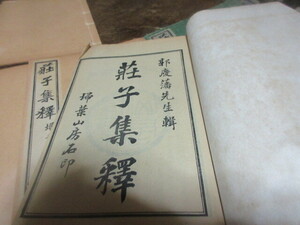 郭慶藩先生輯
莊子集釋
掃葉山房石印
莊子集釋